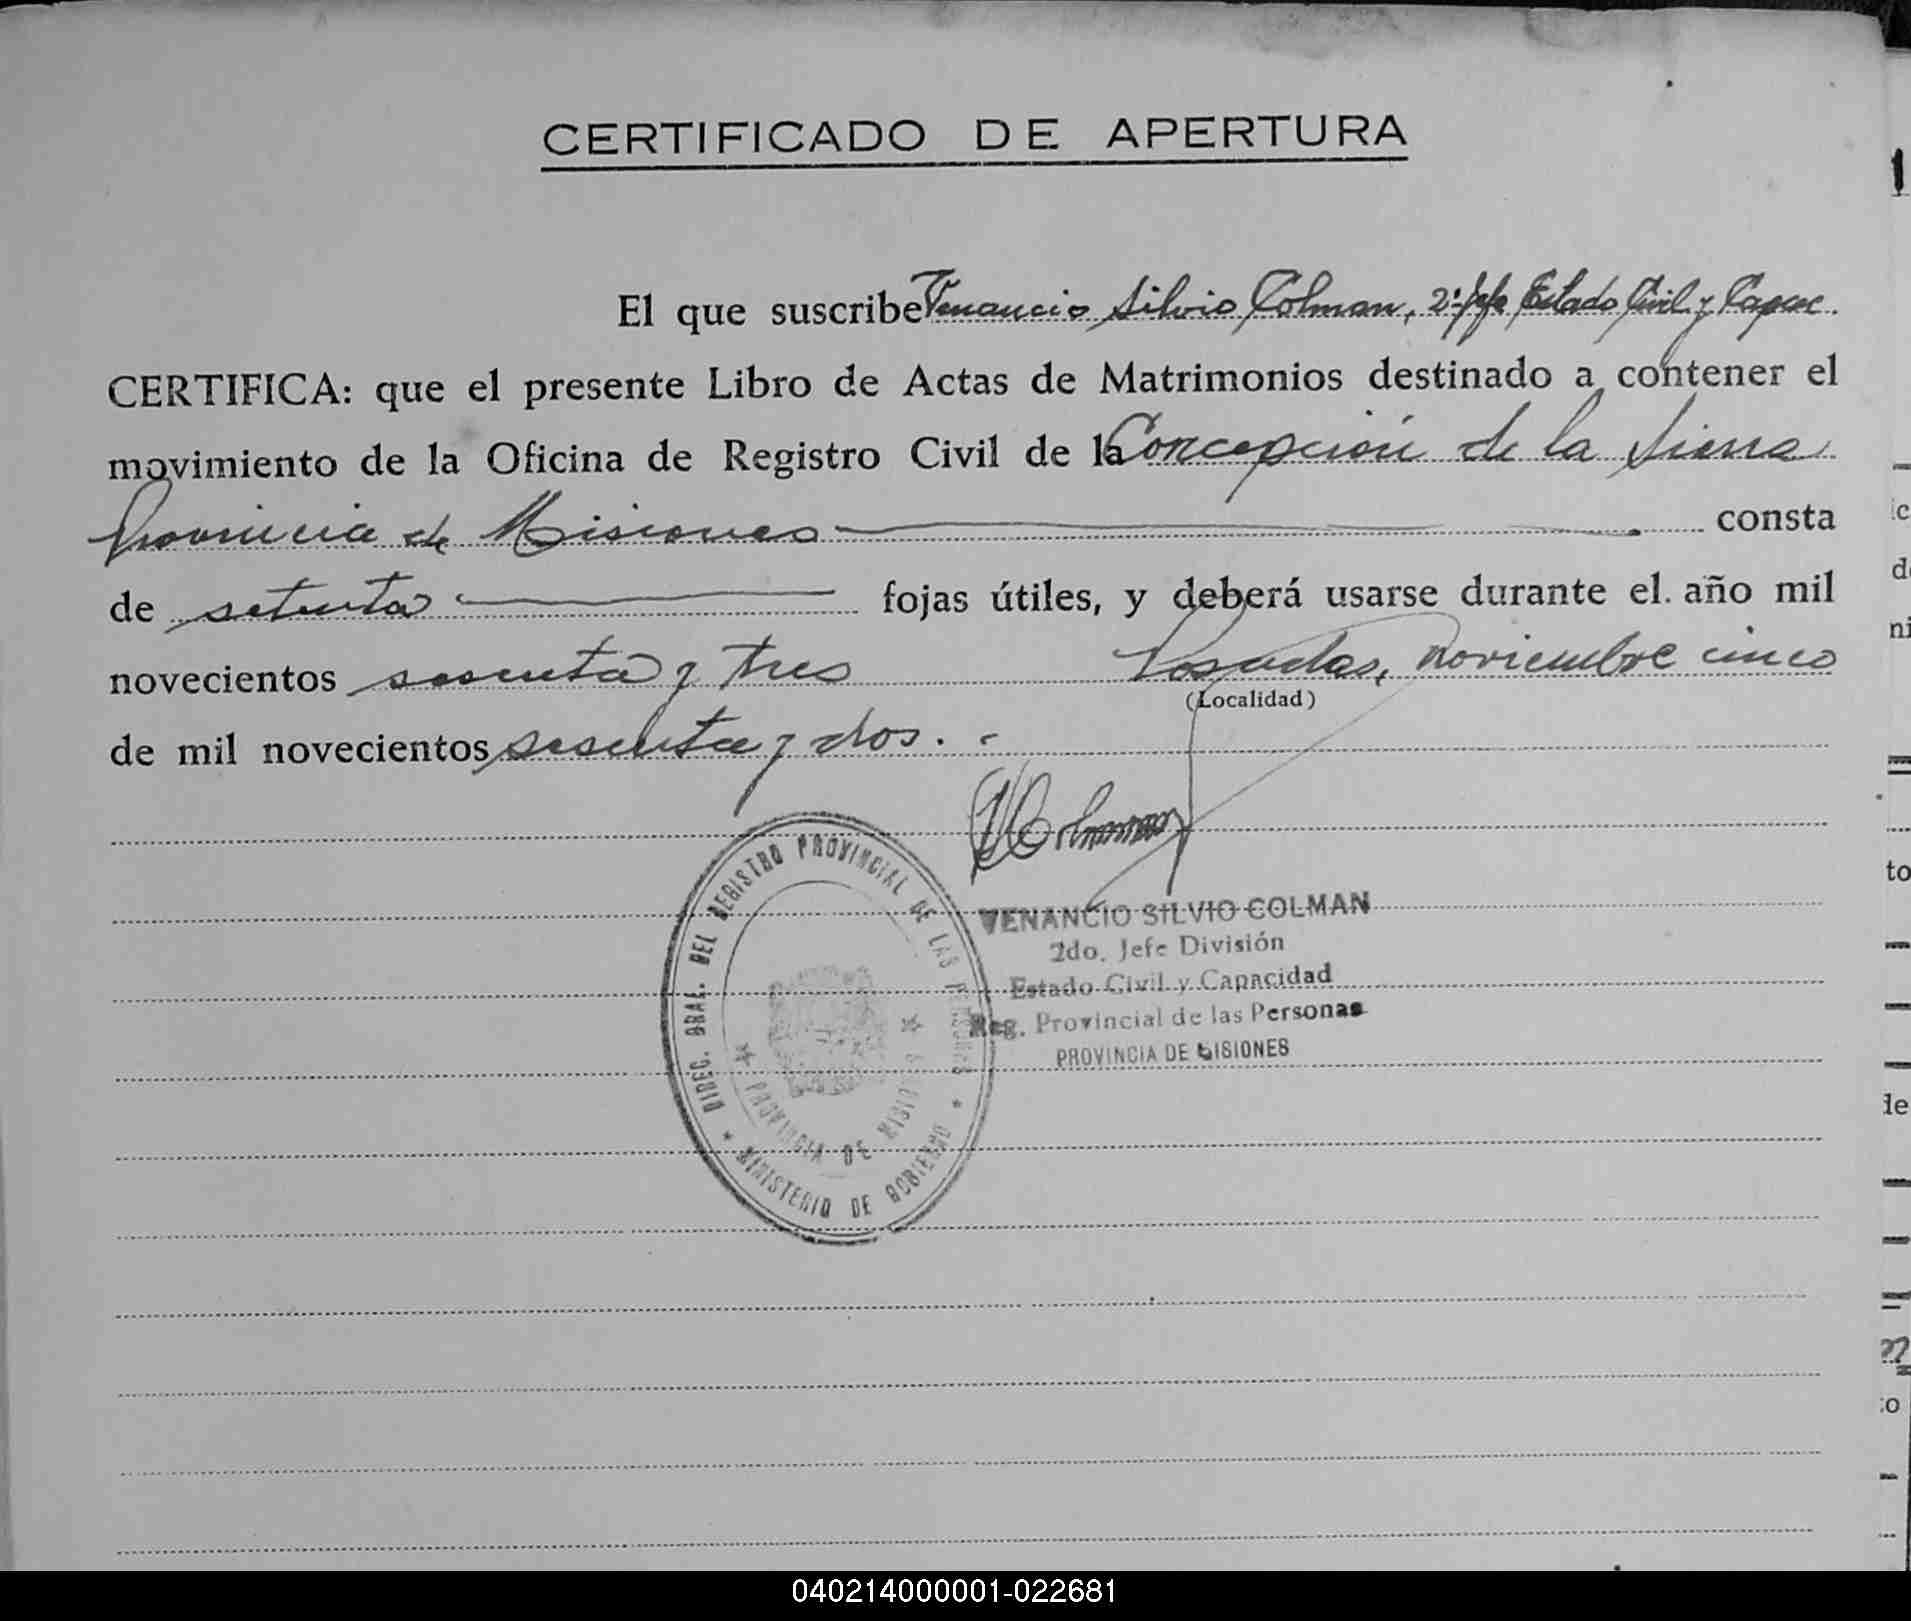 CERTIFICADO DE APERTURA
El que suscribe Venancio Silvio Colman, 2º Jefe Estado Civil y Capac.
CERTIFICA: que el presente Libro de Actas de Matrimonios destinado a contener el
movimiento de la Oficina de Registro Civil de la Concepción de la Sierra
Provincia de Misiones consta
de setenta fojas útiles, y deberá usarse durante el año mil
novecientos sesenta y tres Posadas, noviembre cinco
(Localidad)
de mil novecientos sesenta y dos.
VColman
DIREC. GRAL. DEL REGISTRO PROVINCIAL DE LAS PERSONAS
* MINISTERIO DE GOBIERNO *
PROVINCIA DE MISIONES
VENANCIO SILVIO COLMAN
2do. Jefe División
Estado Civil y Capacidad
Reg. Provincial de las Personas
PROVINCIA DE MISIONES
040214000001-022681